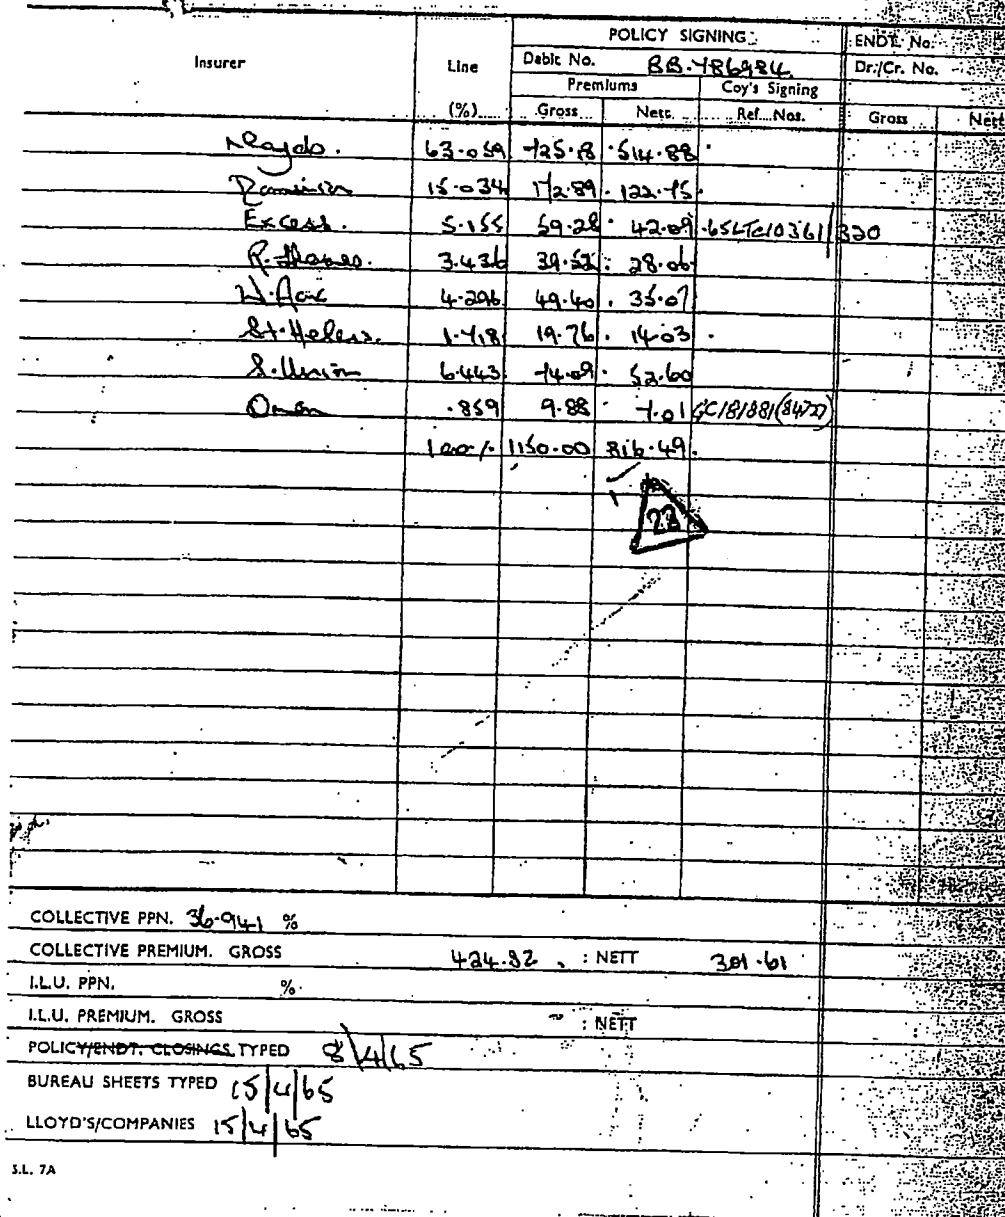 POLICY SIGNING ENDT. No.
Insurer Line Debit No. BB.786984 Dr:/Cr. No.
Premiums Coy's Signing
(%) Gross Nett. Ref. Nos. Gross Nett
Lloyds. 63.059 725.18 514.88
15.034 172.89 122.75
Excess. 5.155 59.28 42.09 65LTC10361/320
R. 3.436 39.52 28.06
W. 4.296 49.40 35.07
St. Helens. 1.718 19.76 14.03
S. Union 6.443 74.09 52.60
.859 9.88 7.01 GC181881(8472)
100% 1150.00 816.49
23
COLLECTIVE PPN. 36.941 %
COLLECTIVE PREMIUM. GROSS 424.82 : NETT 301.61
I.L.U. PPN. %
I.L.U. PREMIUM. GROSS : NETT
POLICY/ENDT. CLOSINGS TYPED 8/4/65
BUREAU SHEETS TYPED 15/4/65
LLOYD'S/COMPANIES 15/4/65
S.L. 7A